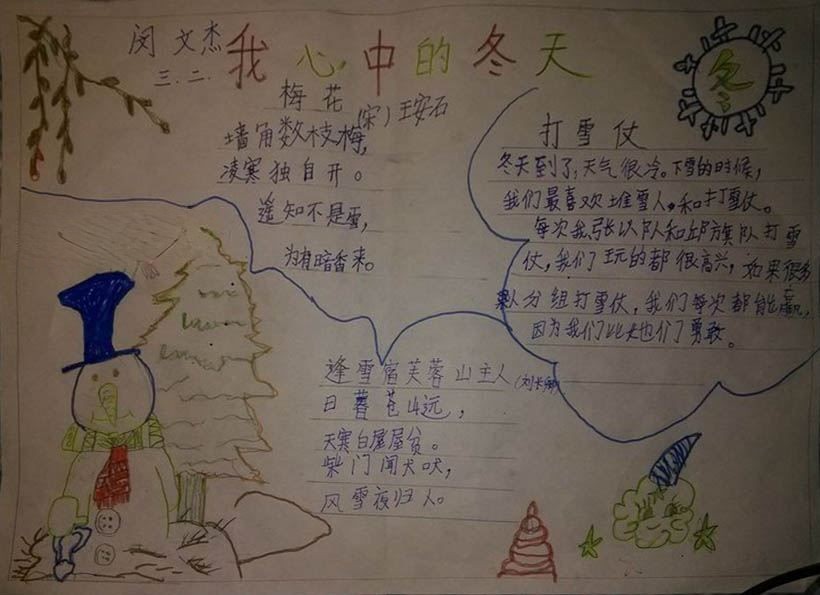 闵文杰
三.二.
我心中的冬天
冬
梅花
(宋)王安石
墙角数枝梅,
凌寒独自开。
遥知不是雪,
为有暗香来。
打雪仗
冬天到了,天气很冷。下雪的时候,
我们最喜欢堆雪人,和打雪仗。
每次我张以队和邱旗队打雪
仗,我们玩的都很高兴,如果很多
队分组打雪仗,我们每次都能赢,
因为我们比他们勇敢。
逢雪宿芙蓉山主人(刘长卿)
日暮苍山远,
天寒白屋屋贫。
柴门闻犬吠,
风雪夜归人。